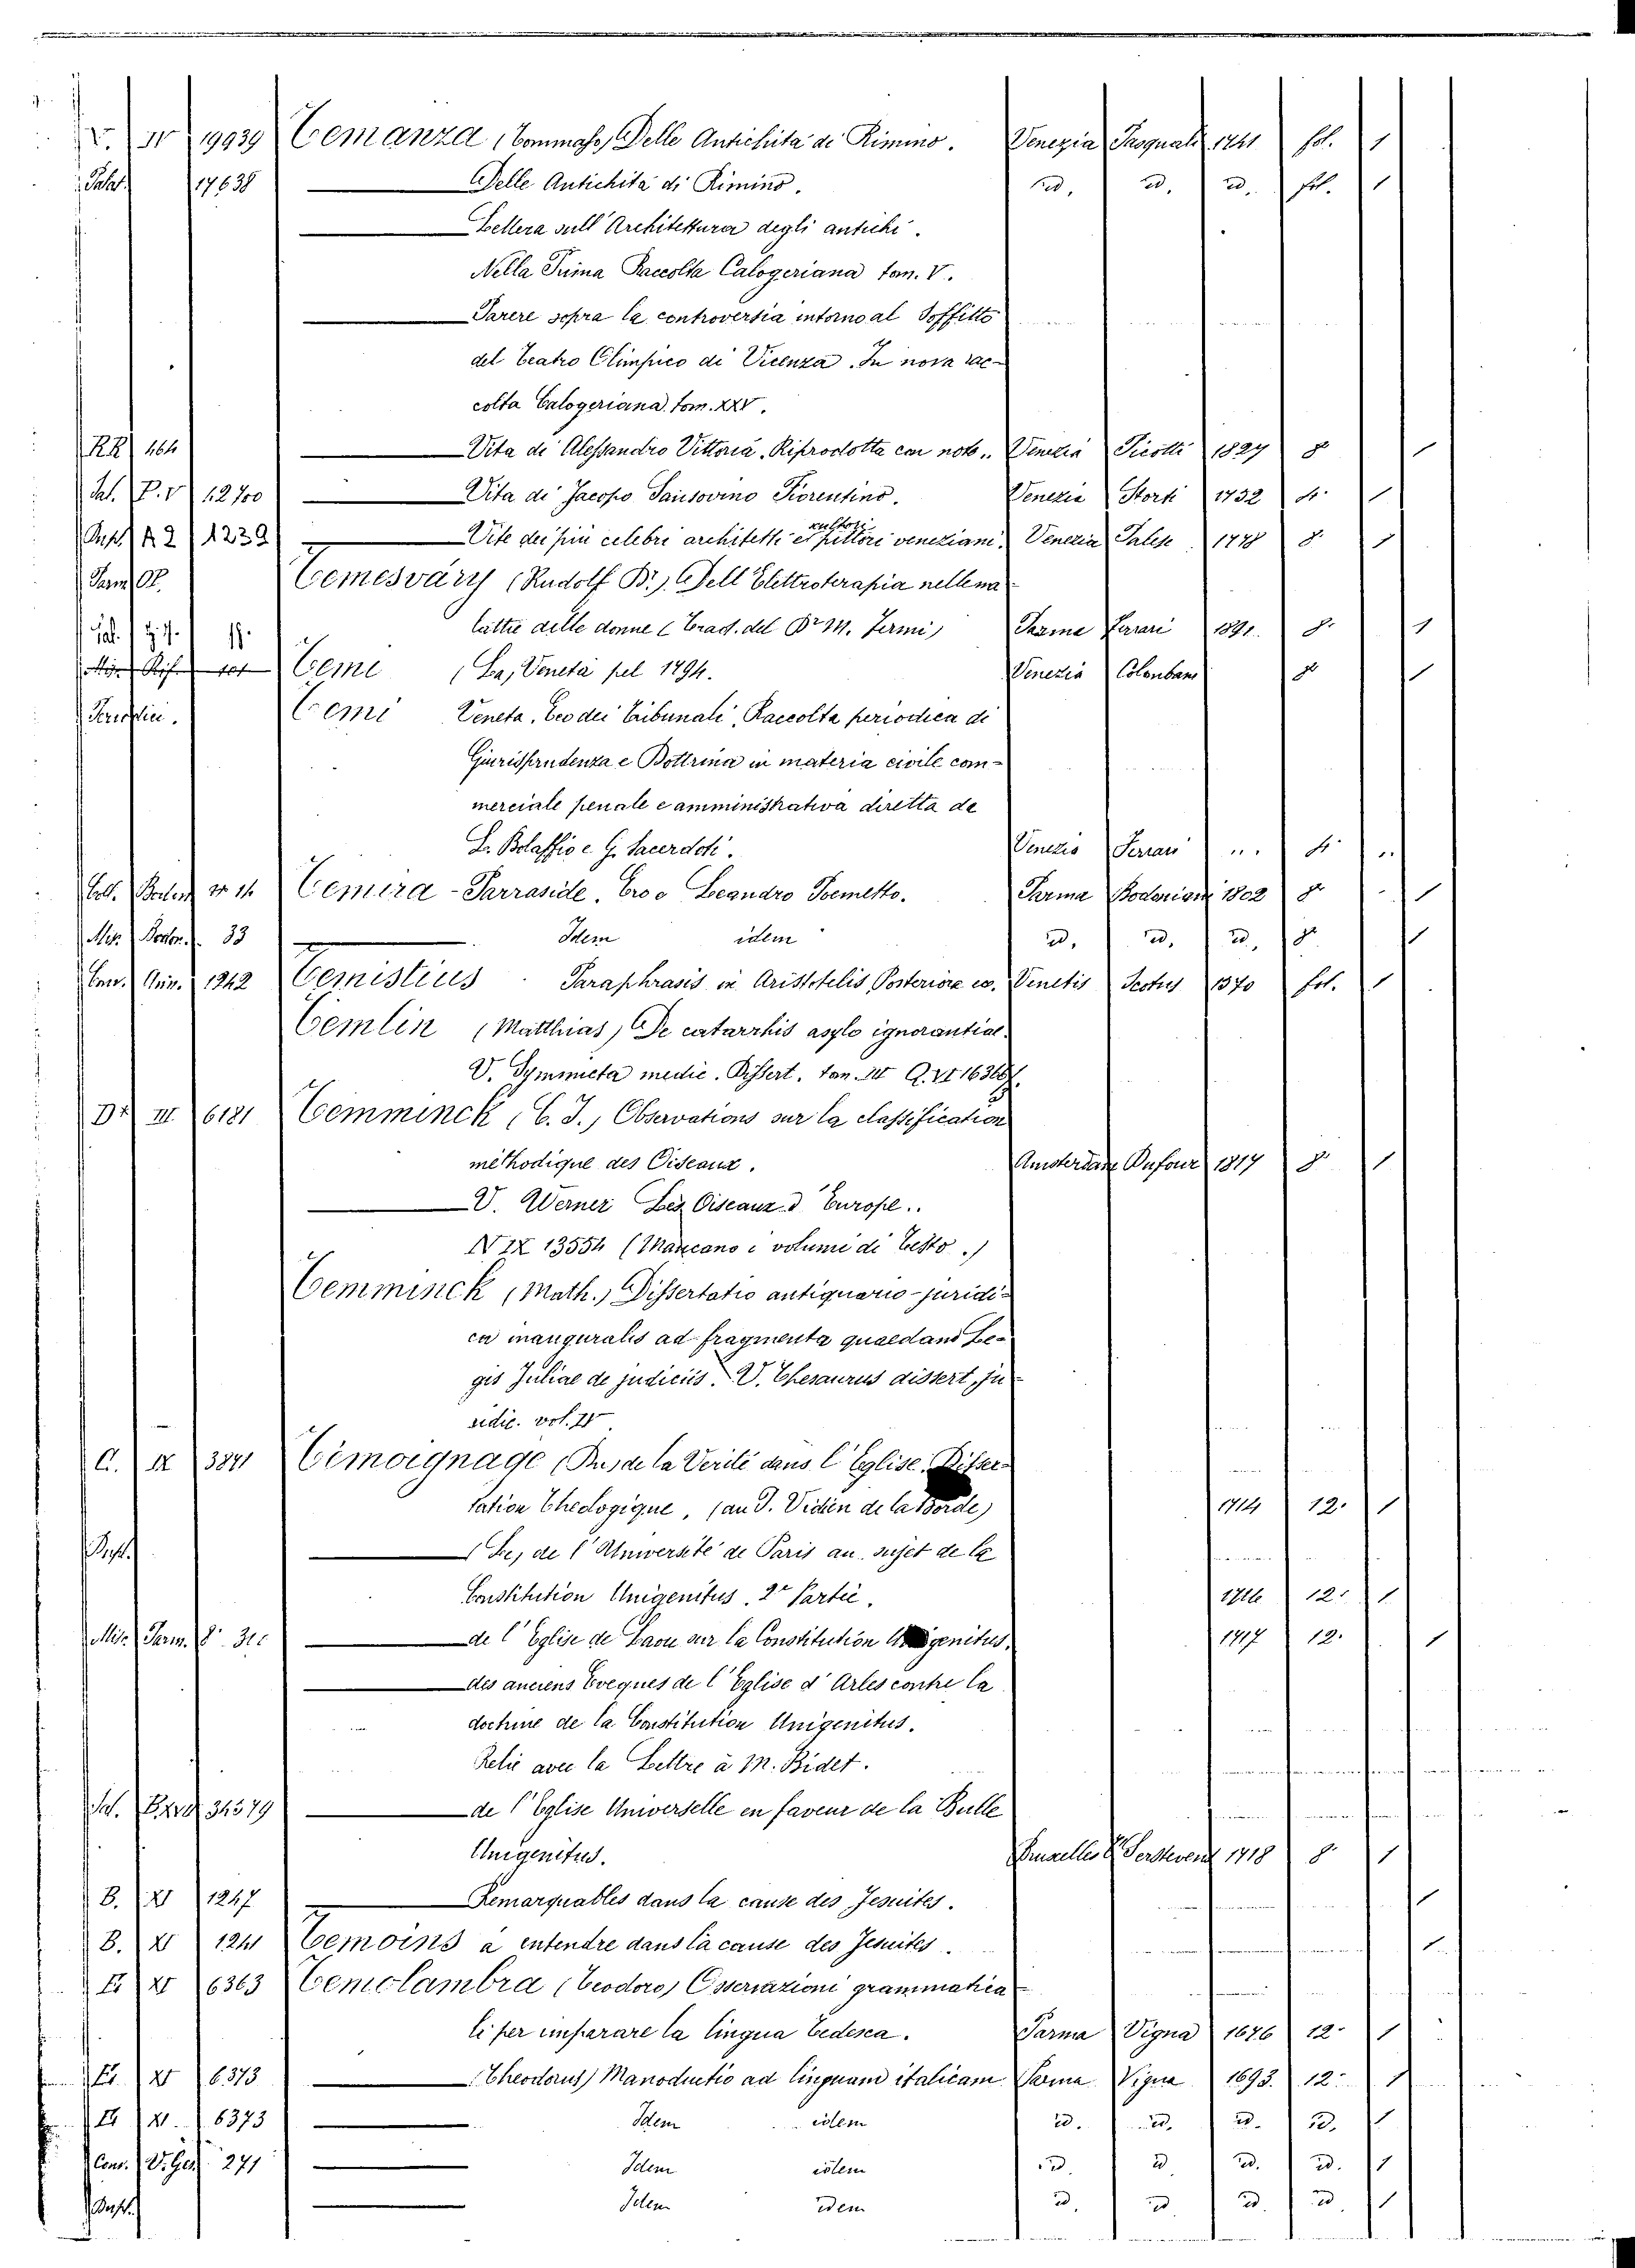 V. IV 19939 Temanza (Tommaso) Delle Antichità di Rimino. Venezia Pasquali 1741 fol. 1
Palat. 17638 Delle Antichità di Rimino. id. id. id. fol. 1
Lettera sull' Architettura degli antichi.
Nella Prima Raccolta Calogeriana tom. V.
Parere sopra la controversia intorno al Soffitto
del Teatro Olimpico di Vicenza. In nova rac-
colta Calogeriana tom. XXV.
RR 464 Vita di Alessandro Vittoria. Riprodotta con note. Venezia Picotti 1827 8° 1
Pal. P. V 12700 Vita di Jacopo Sansovino Fiorentino. Venezia Storti 1752 4° 1
A 2 1232 Vite dei più celebri architetti e scultori veneziani. Venezia Palese 1778 8° 1
Parm. Op. Temesváry (Rudolf Dr.) Dell' Elettroterapia nelle ma
lattie delle donne (Trad. del Dr M. Fermi) Parma Ferrari 1891. 8° 1
101 Temi (La) Veneta pel 1794. Venezia Colombani 8° 1
Temi Veneta, Eco dei Tribunali, Raccolta periodica di
Giurisprudenza e Dottrina in materia civile com-
merciale penale e amministrativa diretta da
L. Bolaffio e G. Sacerdoti. Venezia Ferrari ... 4° ..
Coll. Bodon. Temira-Parraside. Ero e Leandro Poemetto. Parma Bodoniani 1802 8° 1
Mis. Bodon. 33 Idem idem id. id. id. 8° 1
1242 Temistius Paraphrasis in Aristotelis Posteriora ec. Venetis Scotus 1570 fol. 1
Temlin (Matthias) De catarrhis asylo ignorantiae.
V. Symmicta medic. Dissert. tom. IV Q. VI 16366.
D* III 6181 Temminck (C. J.) Observations sur la classification
méthodique des Oiseaux. Amsterdam Dufour 1817 8° 1
V. Werner Les Oiseaux d'Europe..
N IX 13554 (Mancano i volumi di testo.)
Temminck (Math.) Dissertatio antiquario-juridi-
ca inauguralis ad fragmenta quaedam Le-
gis Juliae de judiciis. V. Thesaurus dissert. ju
ridic. vol. II
C. IX 3841 Témoignage (Du) de la Verité dans l'Eglise. Disser-
tation Theologique, (au P. Vidien de la Borde) 1714 12. 1
(Le) de l'Université de Paris au sujet de la
Constitution Unigenitus. 2e Partie. 1716 12. 1
Mis. Parm. 8° de l'Eglise de Laon sur la Constitution Unigenitus. 1717 12. 1
des anciens Eveques de l'Eglise d'Arles contre la
doctrine de la Constitution Unigenitus.
Relié avec la Lettre à M. Bidet.
Pal. 34579 de l'Eglise Universelle en faveur de la Bulle
Unigenitus. Bruxelles T'Serstevens 1718 8° 1
B. XI 1247 Remarquables dans la cause des Jesuites. 1
B. XI 1241 Temoins à entendre dans la cause des Jesuites. 1
XI 6363 Temolambra (Teodoro) Osservazioni grammatica
li per imparare la lingua tedesca. Parma Vigna 1676 12° 1
XI 6373 (Theodorus) Manoductio ad linguam italicam Parma Vigna 1693. 12° 1
XI. 6373 Idem idem id. id. id. id. 1
Cons. V. Ger. 271 Idem idem id. id. id. id. 1
Idem idem id. id. id. id. 1